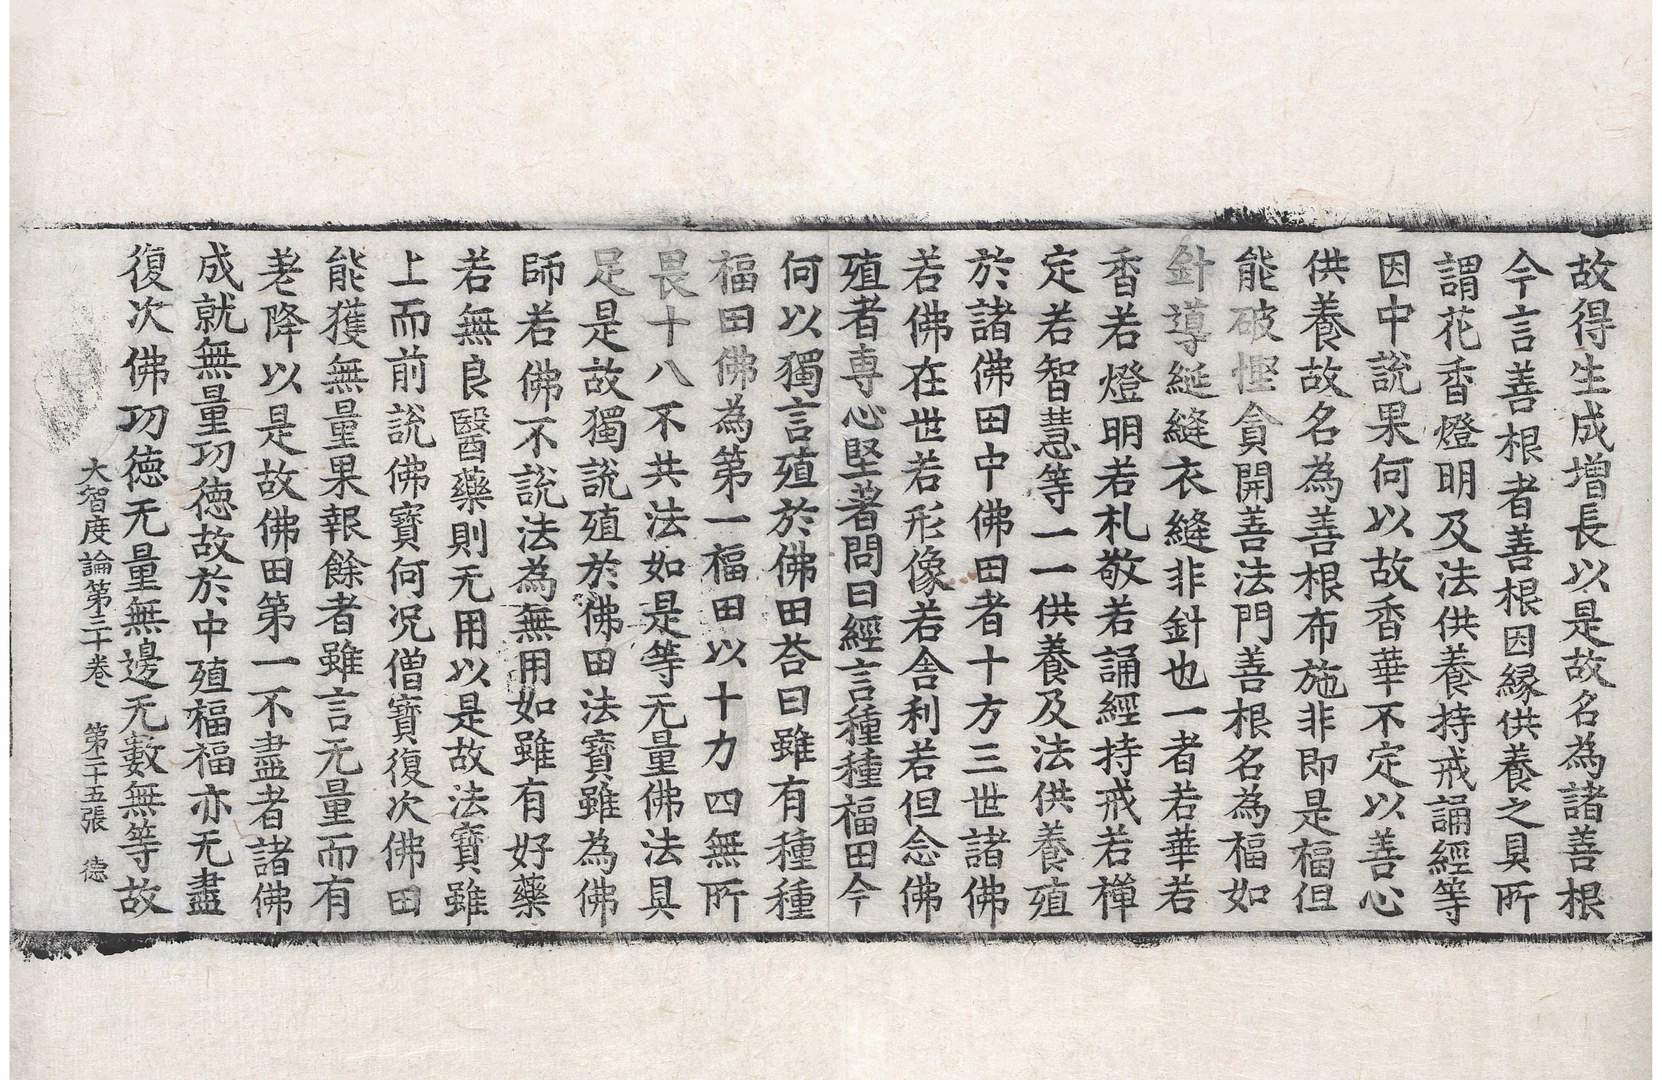 故得生成增長以是故名為諸善根
今言善根者善根因縁供養之具所
謂花香燈明及法供養持戒誦經等
因中說果何以故香華不定以善心
供養故名為善根布施非即是福但
能破慳貪開善法門善根名為福如
針導綖縫衣縫非針也一者若華若
香若燈明若札敬若誦經持戒若禪
定若智慧等一一供養及法供養殖
於諸佛田中佛田者十方三世諸佛
若佛在世若形像若舍利若但念佛
殖者専心堅著問曰經言種種福田今
何以獨言殖於佛田荅曰雖有種種
福田佛為第一福田以十力四無所
畏十八不共法如是等无量佛法具
足是故獨說殖於佛田法寶雖為佛
師若佛不說法為無用如雖有好藥
若無良醫藥則无用以是故法寶雖
上而前說佛寶何況僧寶復次佛田
能獲無量果報餘者雖言无量而有
差降以是故佛田第一不盡者諸佛
成就無量功德故於中殖福福亦无盡
復次佛功德无量無邊无數無等故
大智度論第三十卷 第二十五張 德